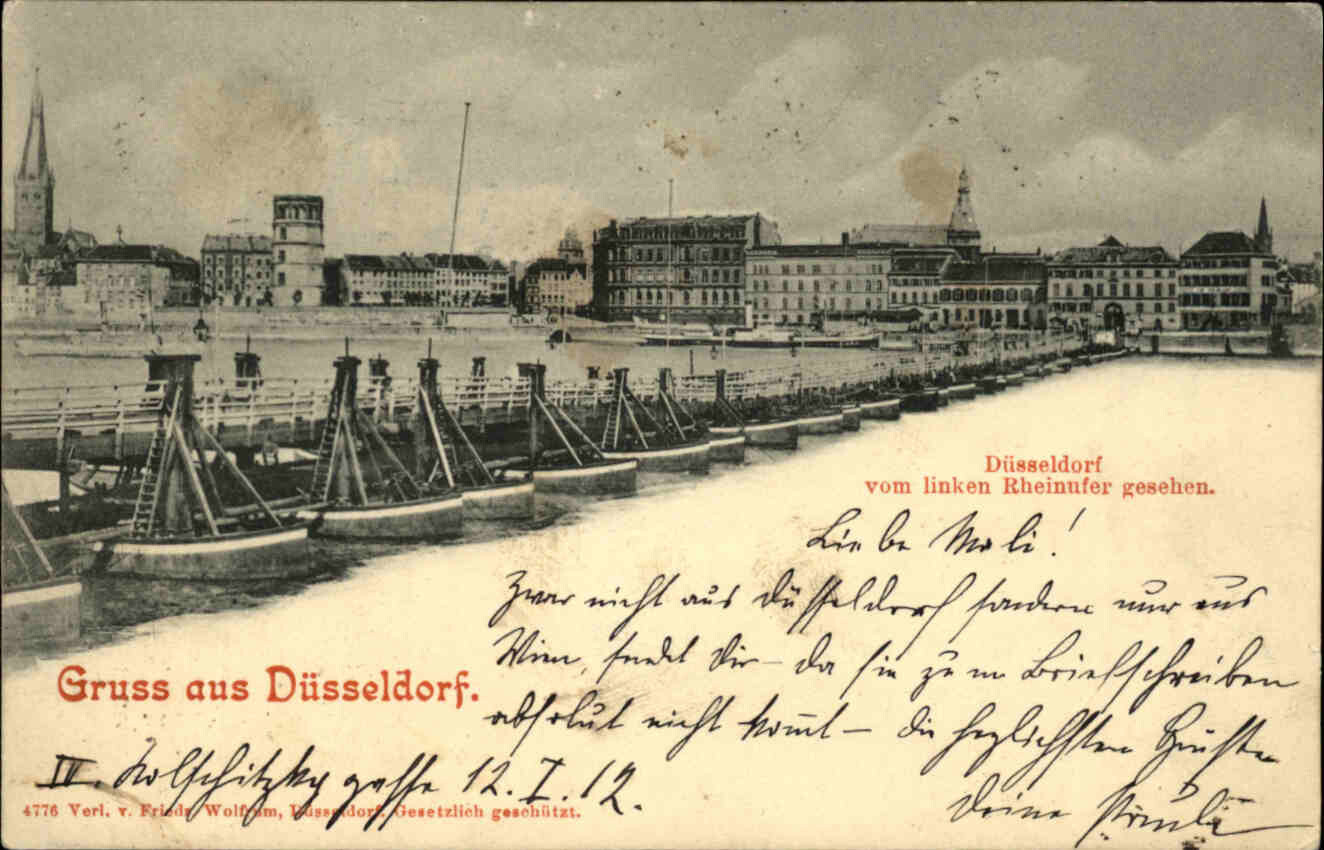 Düsseldorf
vom linken Rheinufer gesehen.
Liebe Mali!
Zwar nicht aus Düsseldorf sondern nur aus
Wien, sendet Dir – da sie zum Briefschreiben
absolut nicht kom̄t – die herzlichsten Grüße
Deine
Gruss aus Düsseldorf.
IV. gasse 12. I. 12.
4776 Verl. v. Friedr. Wolfrum, Düsseldorf. Gesetzlich geschützt.